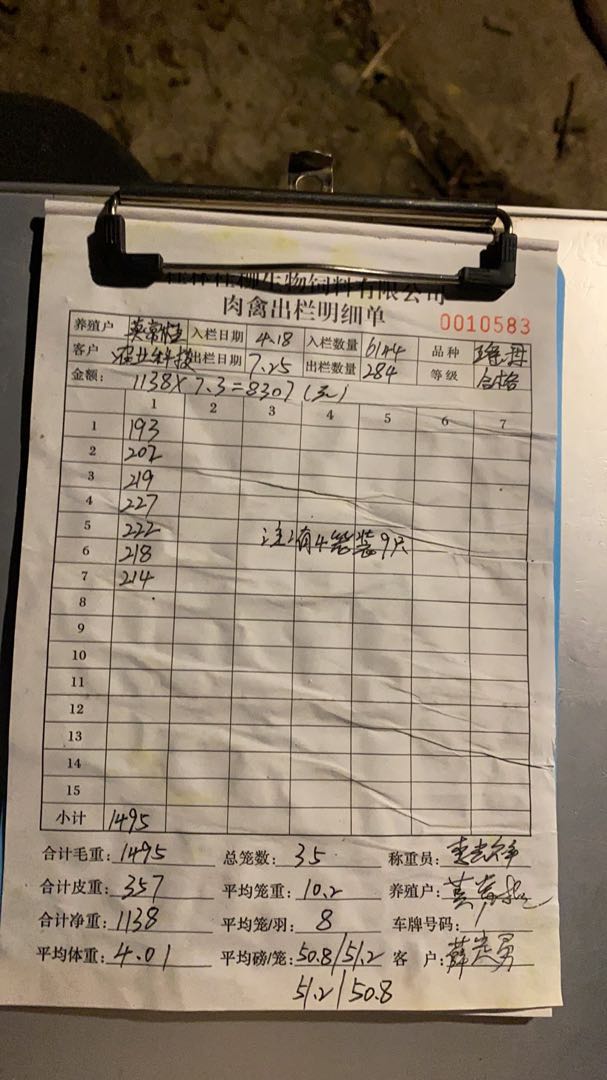 生物饲料有限公司
肉禽出栏明细单
0010583
养殖户 入栏日期 4.18 入栏数量 6144 品种
客户 出栏日期 7.25 出栏数量 284 等级 合格
金额: 1138×7.3=8307(元)
1 2 3 4 5 6 7
1 193
2 202
3 219
4 227
5 222 注:有4笼装9只
6 218
7 214
8
9
10
11
12
13
14
15
小计 1495
合计毛重: 1495 总笼数: 35 称重员:
合计皮重: 357 平均笼重: 10.2 养殖户:
合计净重: 1138 平均笼/羽: 8 车牌号码:
平均体重: 4.01 平均磅/笼: 50.8/51.2 客 户:
51.2/50.8